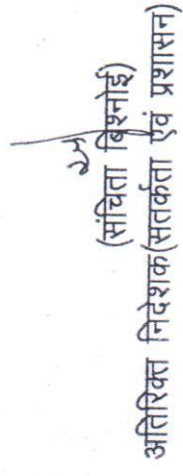 (संचिता बिश्नोई)
अतिरिक्त निदेशक(सतर्कता एवं प्रशासन)